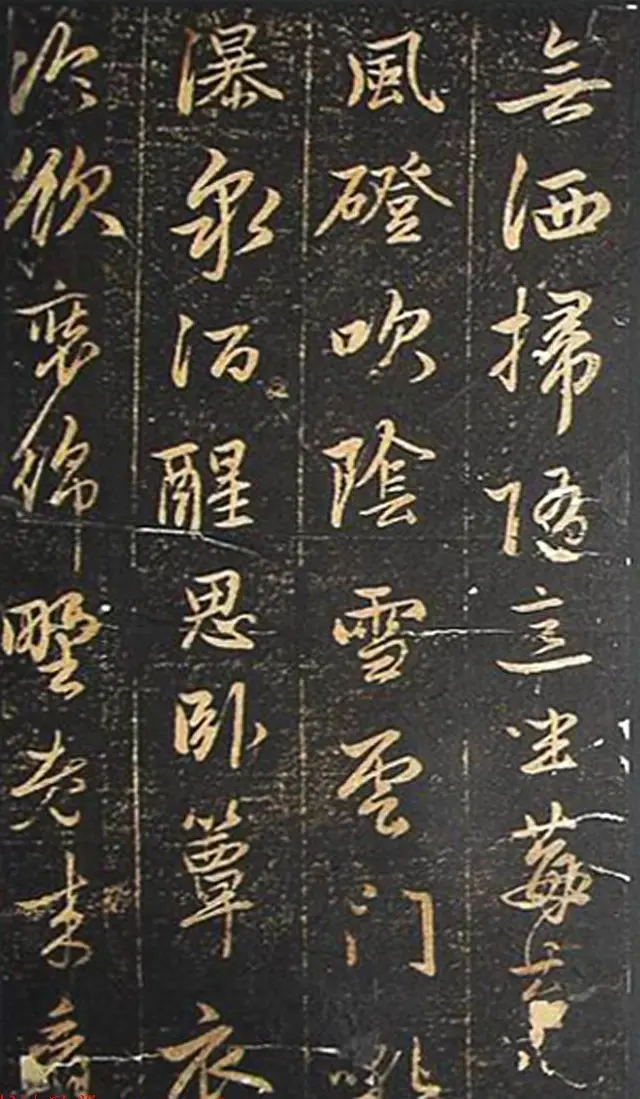 無洒掃隨意坐莓苔
風磴吹陰雪雲门吼
瀑泉酒醒思臥簟衣
冷欲裝綿野老來看